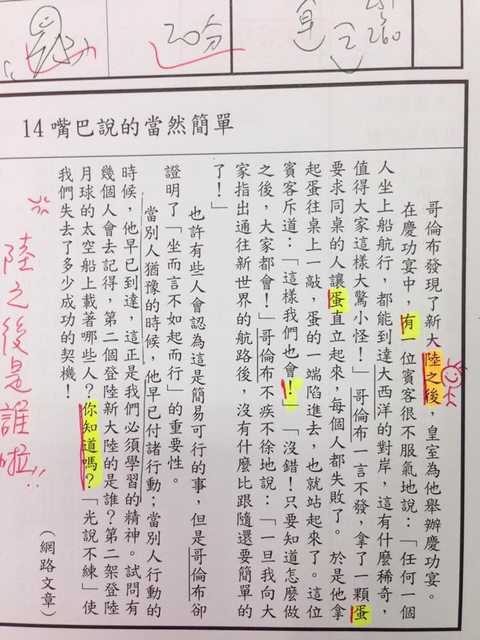 20分
260
14 嘴巴說的當然簡單
哥倫布發現了新大陸之後，皇室為他舉辦慶功宴。
在慶功宴中，有一位賓客很不服氣地說：「任何一個
人坐上船航行，都能到達大西洋的對岸，這有什麼稀奇，
值得大家這樣大驚小怪！」哥倫布一言不發，拿了一顆蛋
要求同桌的人讓蛋直立起來，每個人都失敗了。於是他拿
起蛋往桌上一敲，蛋的一端陷進去，也就站起來了。這位
賓客斥道：「這樣我們也會！」「沒錯！只要知道怎麼做
之後，大家都會！」哥倫布不疾不徐地說：「一旦我向大
家指出通往新世界的航路後，沒有什麼比跟隨還要簡單的
了！」
也許有些人會認為這是簡易可行的事，但是哥倫布卻
證明了「坐而言不如起而行」的重要性。
當別人猶豫的時候，他早已付諸行動；當別人行動的
時候，他早已到達，這正是我們必須學習的精神。試問有
幾個人會去記得，第二個登陸新大陸的是誰？第二架登陸
月球的太空船上載著哪些人？你知道嗎？「光說不練」使
我們失去了多少成功的契機！
（網路文章）
陸之後是誰啦!!